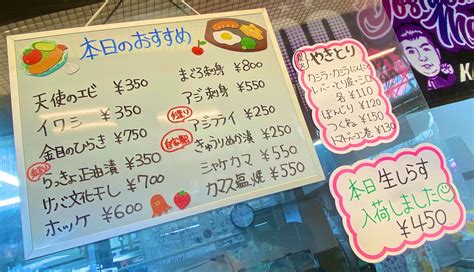 本日のおすすめ
天使のエビ ¥350
イワシ ¥350
金目のひらき ¥750
らっきょ正油漬 ¥350
サバ文化干し ¥700
ホッケ ¥600
まぐろ刺身 ¥800
アジ刺身 ¥550
手造り
アジフライ ¥250
自家製
きゅうりぬか漬 ¥250
シャケカマ ¥550
カマス塩焼 ¥550
やきとり
カシラ・カシラにんにく
レバー・とり皮・シロ
各 ¥110
ぼんじり ¥120
つくね ¥150
トマトベーコン巻 ¥130
本日 生しらす
入荷しました
¥450